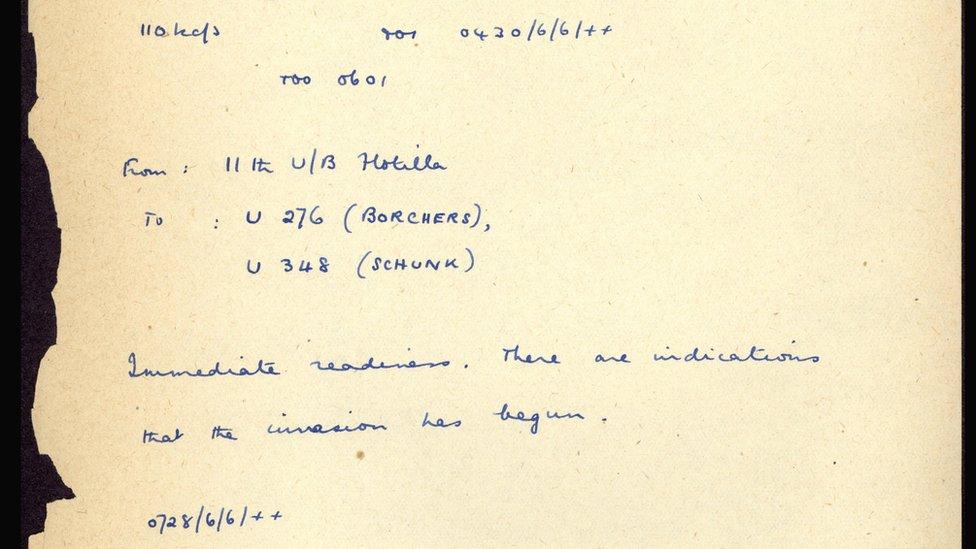 110 kc/s TOI 0430/6/6/++
TOO 0601
From : 11th U/B Flotilla
To : U 276 (BORCHERS),
U 348 (SCHUNK)
Immediate readiness. There are indications
that the invasion has begun.
0728/6/6/++